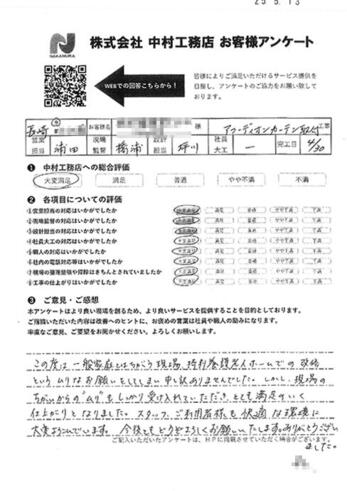 25 5. 13
NAKAMURA
株式会社 中村工務店 お客様アンケート
WEBでの回答こちらから!
皆様によりご満足いただけるサービス提供を
目指し、アンケートのご協力をお願い致して
おります。
長崎 お客様名 様 アコーディオンカーテン取付 工事
営業担当 浦田 現場監督 橋浦 設計担当 坪川 社員大工 ー 完工日 4/30
❶ 中村工務店への総合評価
大変満足 満足 普通 やや不満 不満
❷ 各項目についての評価
①営業担当の対応はいかがでしたか 大変満足 満足 普通 やや不満 不満
②現場監督の対応はいかがでしたか 大変満足 満足 普通 やや不満 不満
③設計担当の対応はいかがでしたか 大変満足 満足 普通 やや不満 不満
④社員大工の対応はいかがでしたか 大変満足 満足 普通 やや不満 不満
⑤職人の対応はいかがでしたか 大変満足 満足 普通 やや不満 不満
⑥社内の電話対応等はいかがでしたか 大変満足 満足 普通 やや不満 不満
⑦現場の整理整頓や掃除はきちんとされていましたか 大変満足 満足 普通 やや不満 不満
⑧工事の仕上がりはいかがでしたか 大変満足 満足 普通 やや不満 不満
❸ ご意見・ご感想
本アンケートはより良い現場を創るため、より良いサービスを提供することを目的としております。
ご指摘いただいた内容は改善へのヒントに、お褒めの言葉は社員や職人の励みになります。
率直なご意見、ご要望をお聞かせください。よろしくお願いします。
この度は一般家庭とはちがう現場、特別養護老人ホームでの改修
というムリなお願いをしてしまい申し訳ありませんでした。しかし、現場の
ちがいからの"ムリ"もしっかり受け入れていただき、とても満足のいく
仕上がりとなりました。スタッフ、ご利用者様も快適な環境に
大変よろこんでいます。今後ともどうぞよろしくお願いいたします。ありがとうござい
ました。
ご記入いただいたアンケートは、HPに掲載させていただく場合がございます。